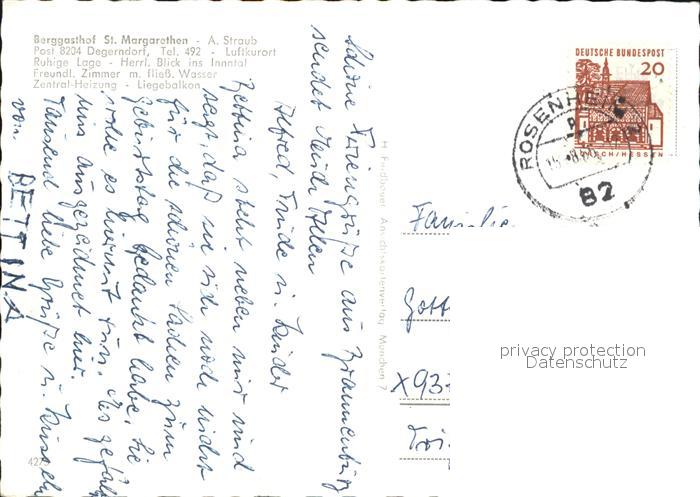 Berggasthof St. Margarethen - A. Straub
Post 8204 Degerndorf, Tel. 492 - Luftkurort
Ruhige Lage - Herrl. Blick ins Inntal
Freundl. Zimmer m. fließ. Wasser
Zentral-Heizung - Liegebalkon
Schöne Feriengrüße aus Brannenburg
sendet Euch Allen
Alfred, Trude u. Kinder
Bettina steht neben mir und
sagt, daß sie sich noch nicht
für die schönen Sachen zum
Geburtstag bedankt habe. Sie
wolle es hiermit tun. Es gefällt
uns ausgezeichnet hier.
Tausend liebe Grüße u. Küsse
von BETTINA
Ansichtskartenverlag München 7
427
DEUTSCHE BUNDESPOST
20
LORSCH/HESSEN
ROSENHEIM
82
Familie
Gott
X93
privacy protection
Datenschutz